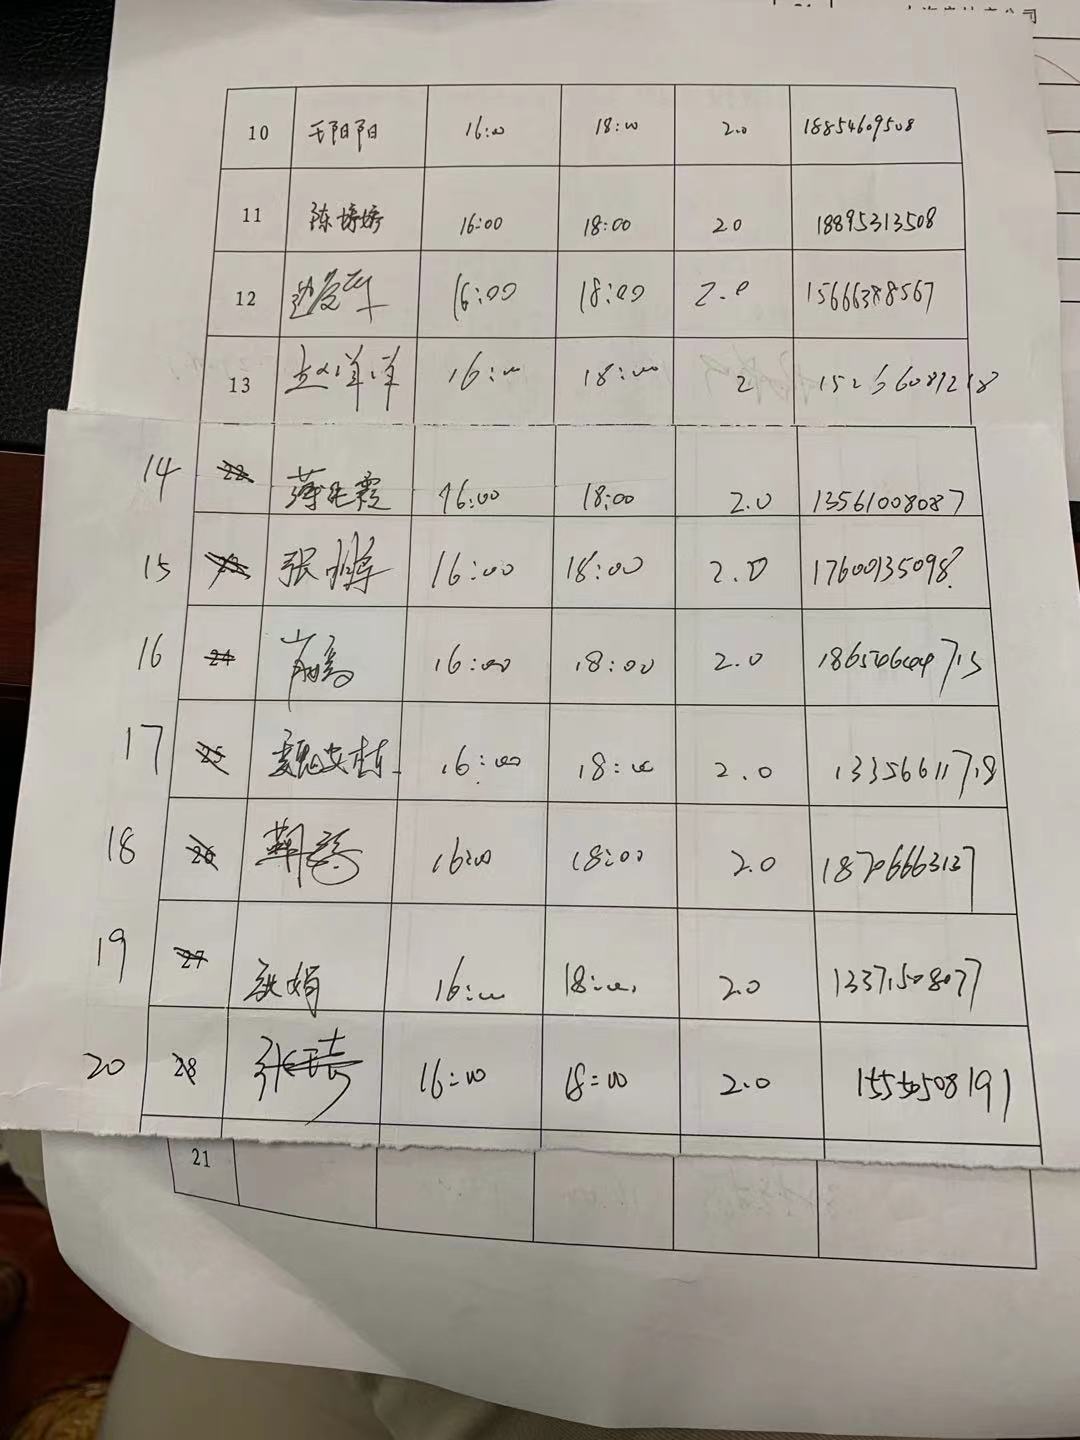 10 王阳阳 16:00 18:00 2.0 18854609508
11 陈婷婷 16:00 18:00 20 18895313508
12 16:00 18:00 2.0 15666388567
13 赵洋洋 16:00 18:00 2
14 22 薄先霞 16:00 18:00 2.0 13561008087
15 张 16:00 18:00 2.0 17600135098
16 24 16:00 18:00 2.0
17 25 魏文栋 16:00 18:00 2.0 13356611718
18 26 16:00 18:00 2.0 18706663137
19 27 娟 16:00 18:00 2.0 13371508077
20 28 张 16:00 18:00 2.0
21